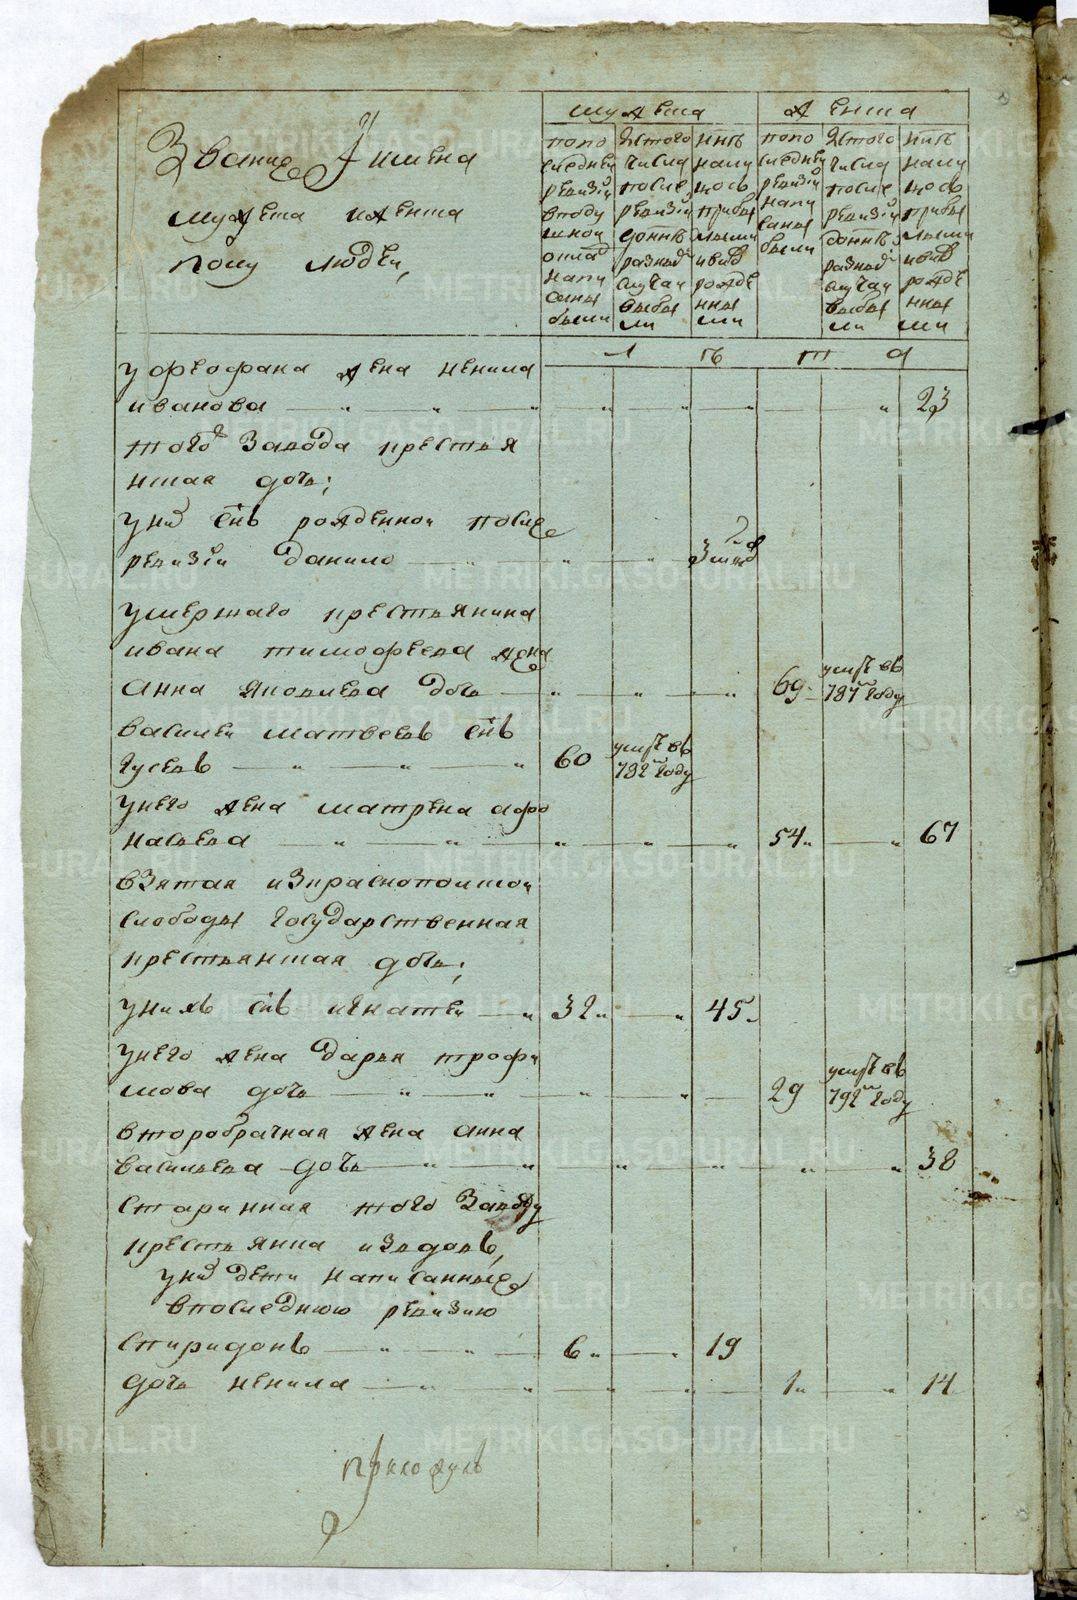 Звание И имена
мужеска иженска
полу людей,
мужеска
женска
попо
следней
ревизiи
вподу
шной
окладъ
напи
саны
были
Изтого
числа
после
ревизiи
донне
разныѣ
случаи
выбы
ли
ннѣ
налицо
прибы
лыми
ивнов
рожде
нны
ми
попо
следней
ревизiи
напи
саны
были
Изтого
числа
после
ревизiи
донне
разныѣ
случаи
выбы
ли
ннѣ
налицо
прибы
лыми
ивнов
рожде
нны
ми
л ѣ т а
уфеофана жена ненила
иванова 23
того завода крестья
нская дочь;
уних снъ рожденной после
ревизiи данило
умершаго крестьянина
ивана тимофеева жена
анна яковлева дочь 69 умре въ 787м году
василей матвеевъ снъ
гусевъ 60 умре въ 792м году
унего жена матрена афо
насьева 54 67
взятая изкраснополской
слободы государственная
крестьянская дочь;
унихъ снъ игнатей 32 45
унего жена дарья трофи
мова дочь 29 умре въ 792м году
второбрачная жена анна
васильева дочь 38
старинная того заводу
крестьянка издовъ,
уних дети написанные
впоследнюю ревизию
спиридонъ 6 19
дочь ненила 1 14